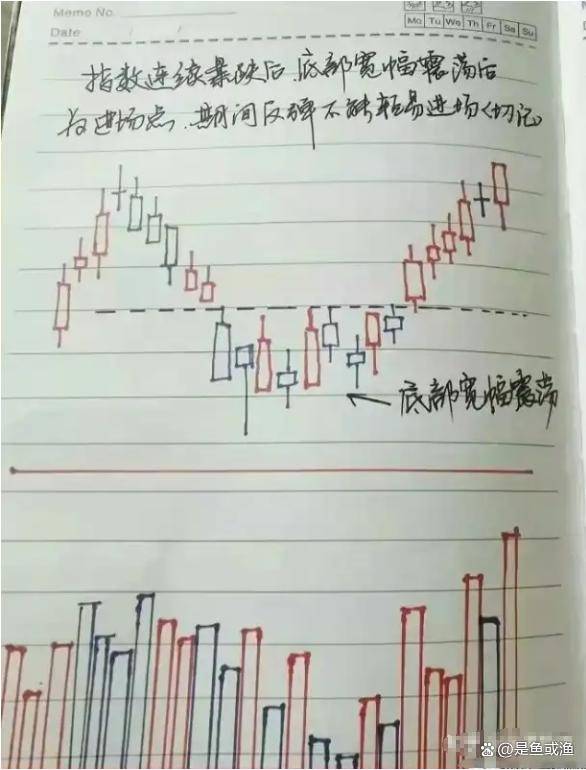 Memo No.
Mo Tu We Th Fr Sa Su
Date / /
指数连续暴跌后、底部宽幅震荡后
为进场点、期间反弹不能轻易进场(切记)
底部宽幅震荡
@是鱼或渔